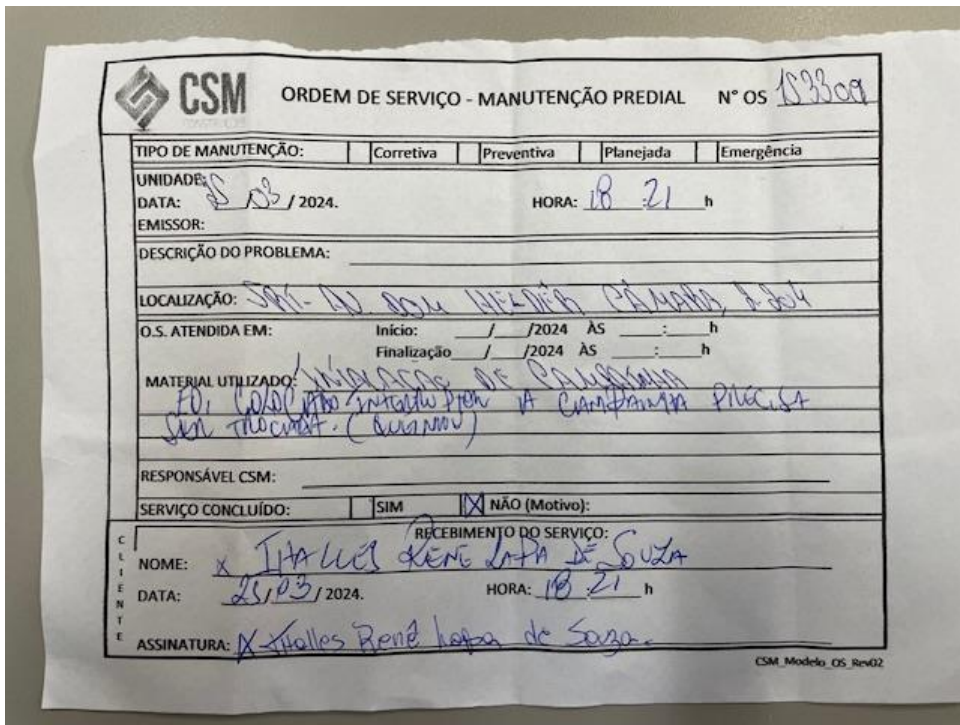 CSM ORDEM DE SERVIÇO - MANUTENÇÃO PREDIAL N° OS 153309
TIPO DE MANUTENÇÃO: Corretiva Preventiva Planejada Emergência
UNIDADE:
DATA: 25/03/2024. HORA: 18:21 h
EMISSOR:
DESCRIÇÃO DO PROBLEMA:
LOCALIZAÇÃO: AV. DOM HELDER CÂMARA,
O.S. ATENDIDA EM: Início: __/__/2024 ÀS __:__h
Finalização __/__/2024 ÀS __:__h
MATERIAL UTILIZADO: INSTALAÇÃO DE CAMPAINHA
FOI COLOCADO INTERRUPTOR A CAMPAINHA PRECISA
SER TROCADA. (QUEIMOU)
RESPONSÁVEL CSM:
SERVIÇO CONCLUÍDO: SIM X NÃO (Motivo):
RECEBIMENTO DO SERVIÇO:
CLIENTE
NOME: X ITHALLES RENE LAPA DE SOUZA
DATA: 25/03/2024. HORA: 18:21 h
ASSINATURA: X Ithalles Renê Lapa de Souza.
CSM_Modelo_OS_Rev02